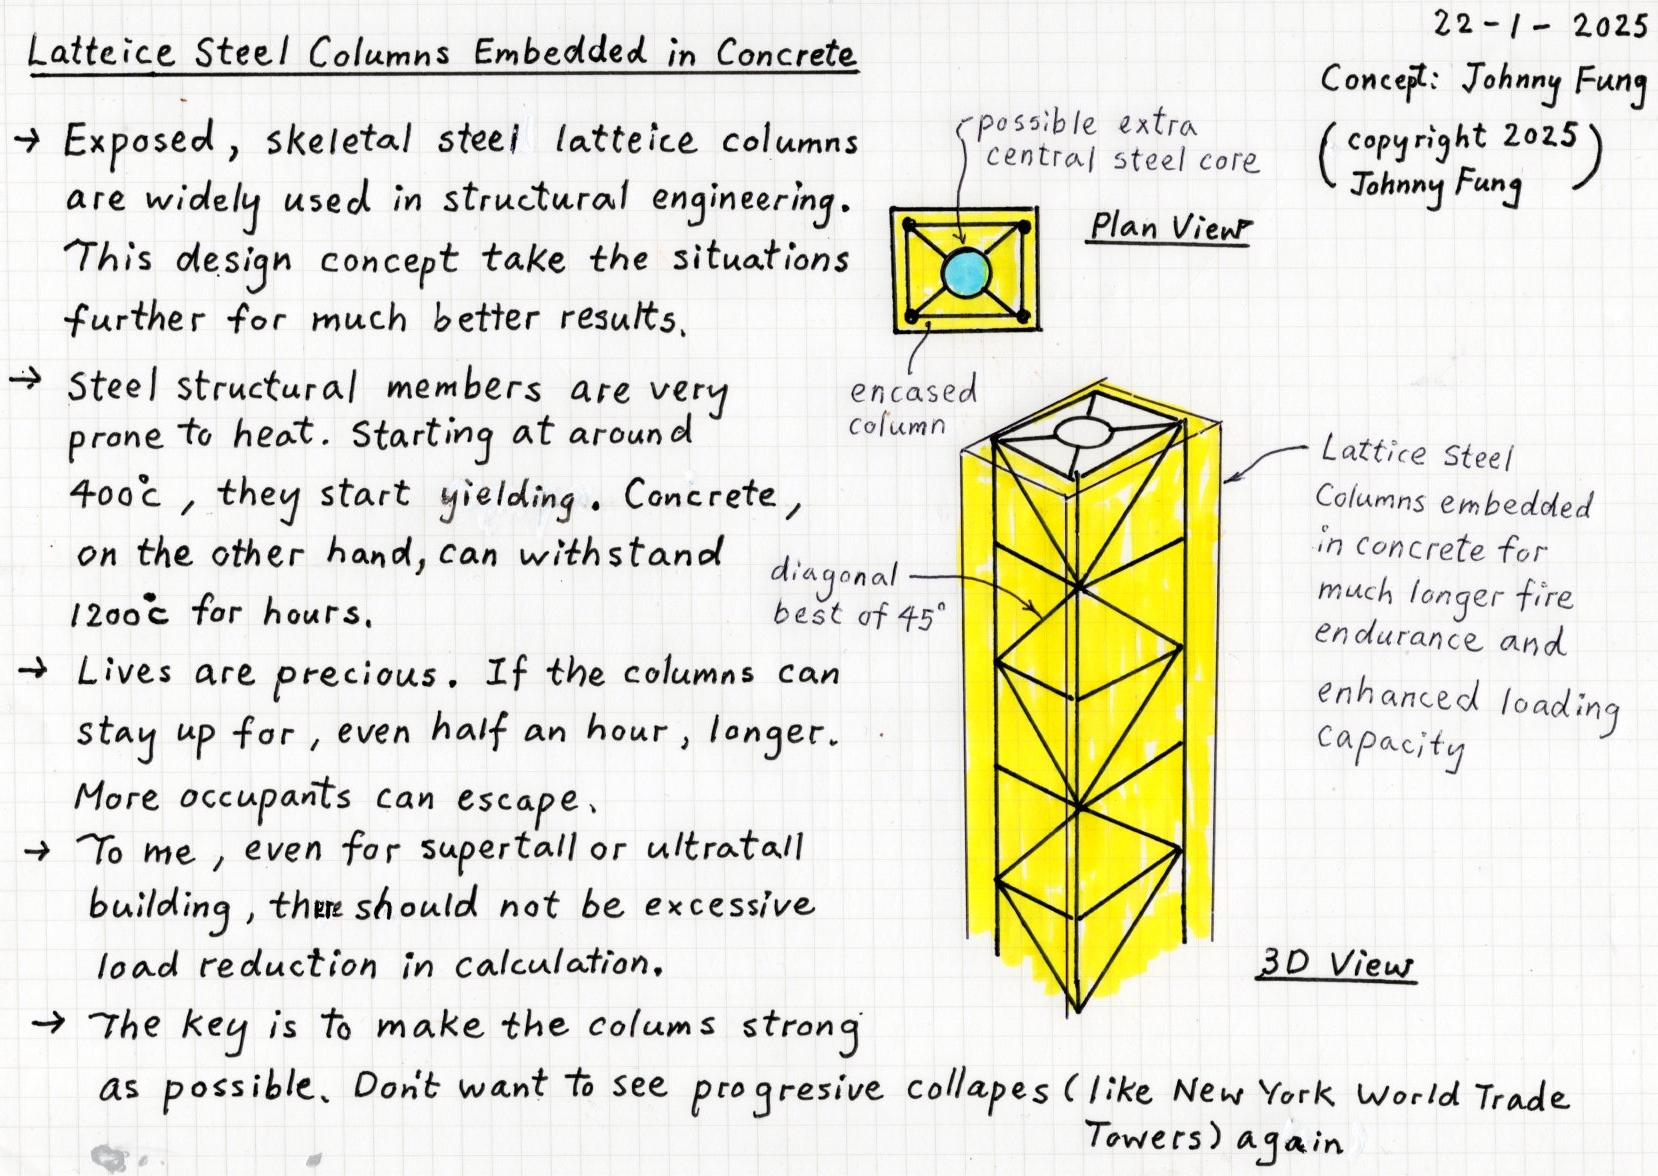 22-1-2025
Latteice Steel Columns Embedded in Concrete
Concept: Johnny Fung
(copyright 2025
Johnny Fung)
→ Exposed, skeletal steel latteice columns
are widely used in structural engineering.
This design concept take the situations
further for much better results.
→ Steel structural members are very
prone to heat. Starting at around
400°c, they start yielding. Concrete,
on the other hand, can withstand
1200°c for hours.
→ Lives are precious. If the columns can
stay up for, even half an hour, longer.
More occupants can escape.
→ To me, even for supertall or ultratall
building, there should not be excessive
load reduction in calculation.
→ The key is to make the colums strong
as possible. Don't want to see progresive collapes (like New York World Trade
Towers) again
possible extra
central steel core
Plan View
encased
column
Lattice Steel
Columns embedded
in concrete for
much longer fire
endurance and
enhanced loading
capacity
diagonal
best of 45°
3D View